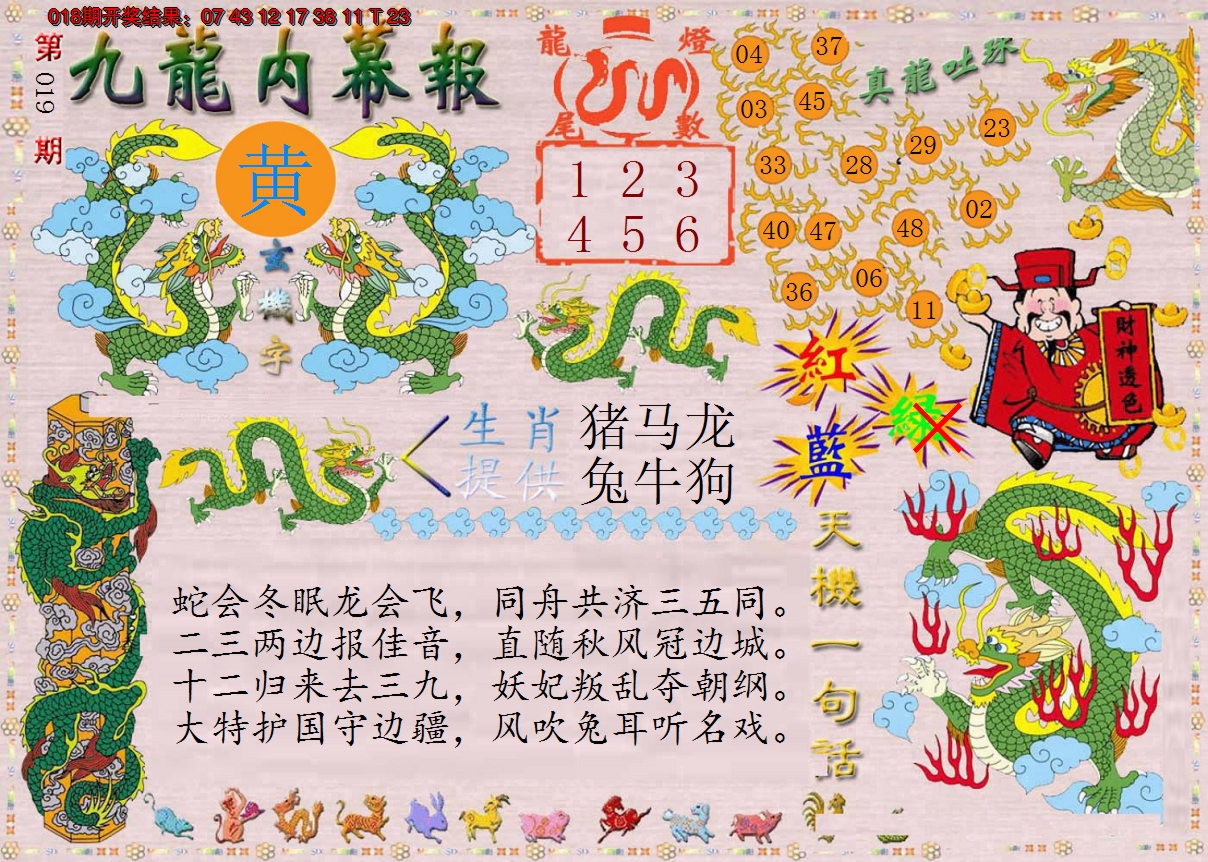 018期开奖结果：07 43 12 17 38 11 T 23
第019期
九龍内幕報
黄
玄機字
龍燈
尾數
1 2 3
4 5 6
真龍吐珠
04
37
03
45
23
29
33
28
02
40
47
48
06
36
11
財神透色
紅
綠
藍
生肖
提供
猪马龙
兔牛狗
天機一句話
蛇会冬眠龙会飞，同舟共济三五同。
二三两边报佳音，直随秋风冠边城。
十二归来去三九，妖妃叛乱夺朝纲。
大特护国守边疆，风吹兔耳听名戏。